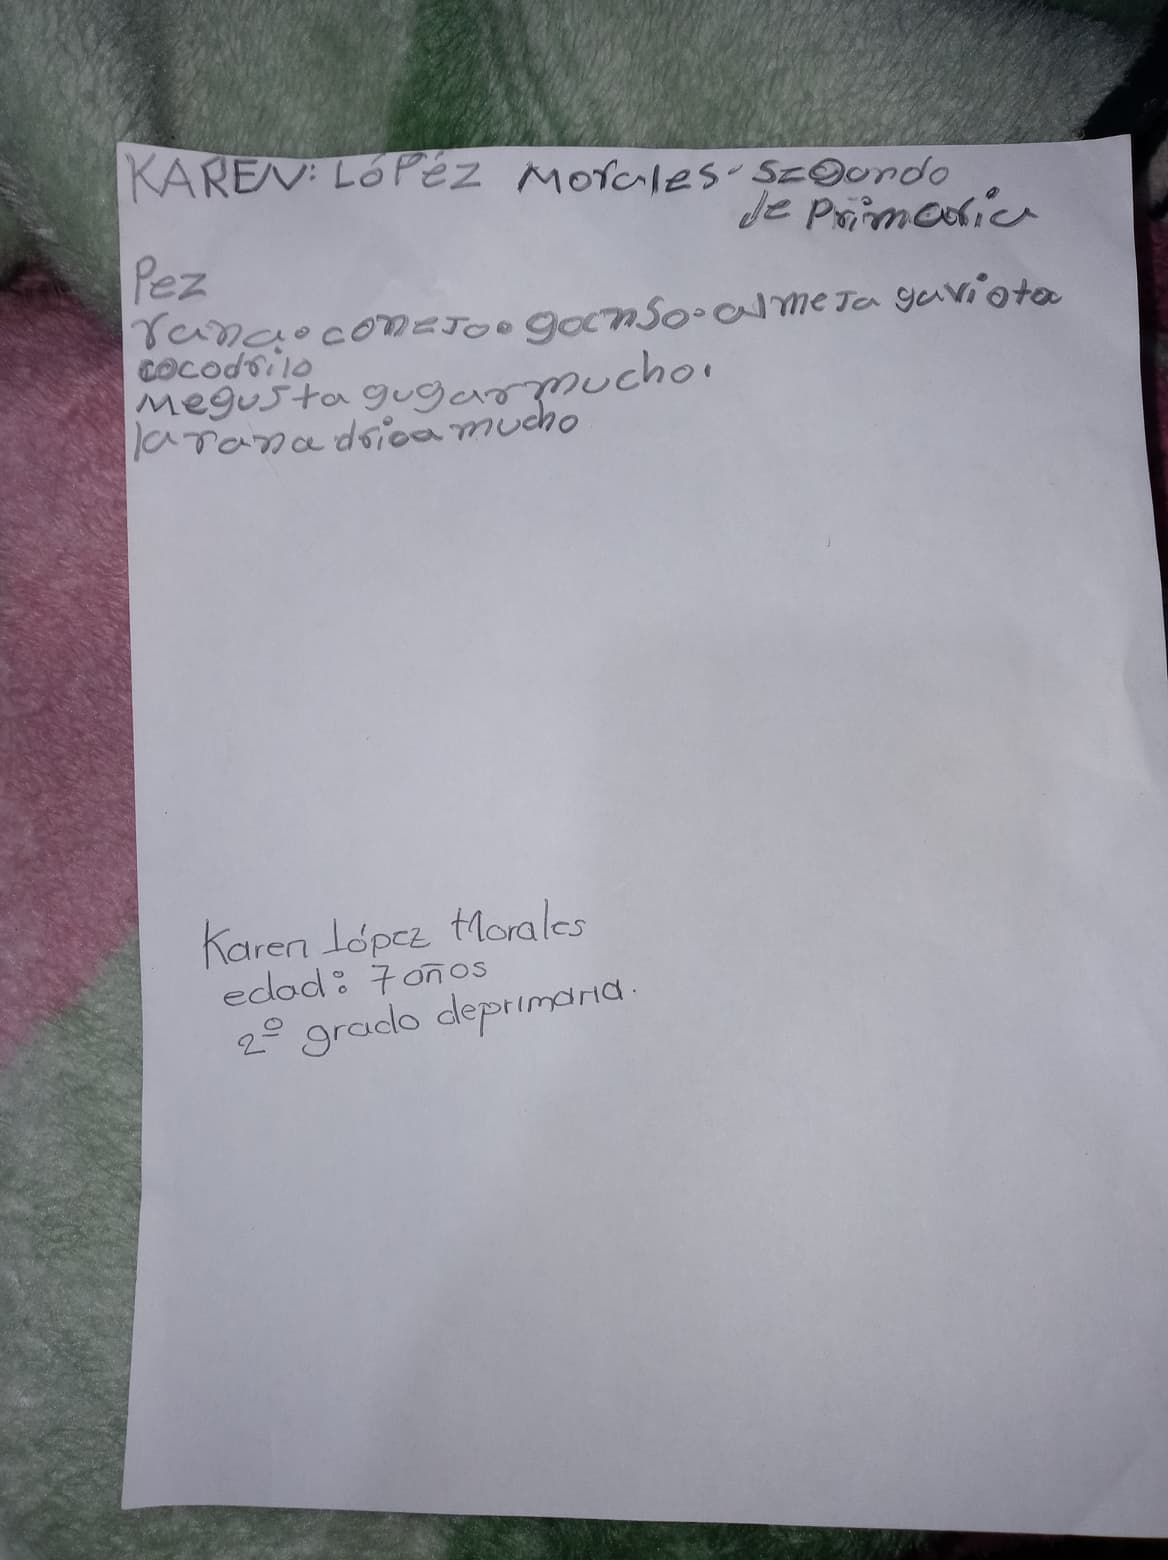 KAREN: LÓPéZ Morales - Segundo
de Primaria
Pez
rana. conejo. ganso. almeja gaviota
cocodrilo
Megusta gugar mucho.
la rana drica mucho
Karen López Morales
edad: 7 años
2º grado deprimaria.